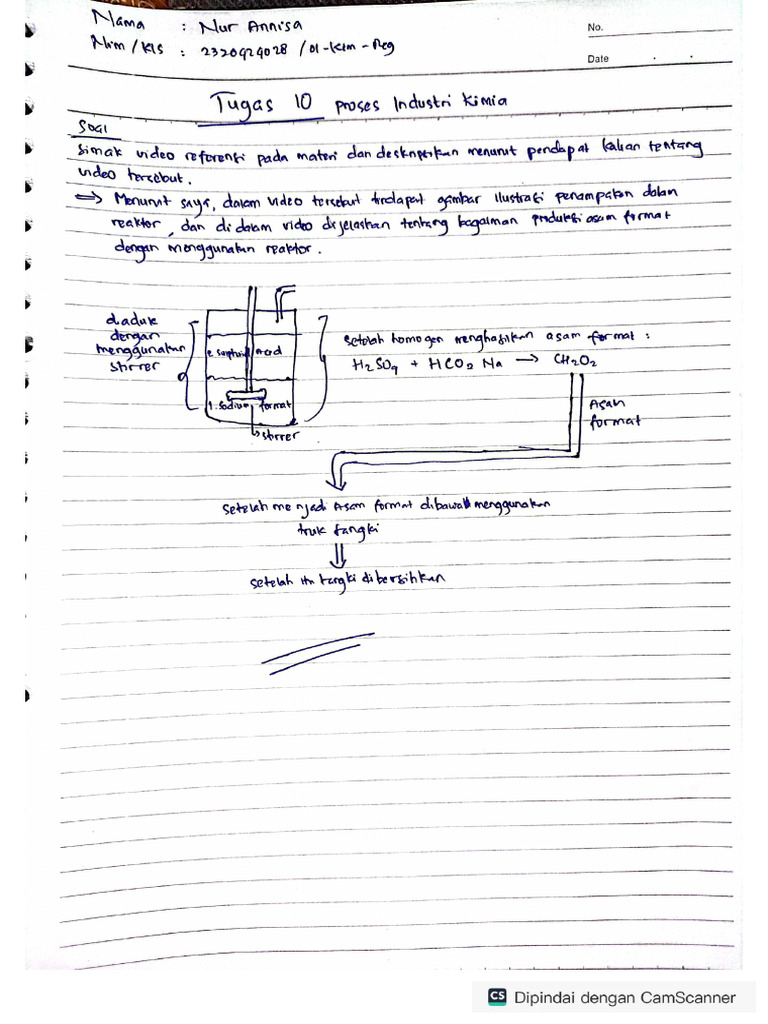 Nama : Nur Annisa
Nim/Kls : 2320424028 / 01-Kim-Reg
No.
Date
Tugas 10 Proses Industri Kimia
Soal
Simak video referensi pada materi dan deskripsikan menurut pendapat kalian tentang
video tersebut.
⇒ Menurut saya, dalam video tersebut terdapat gambar ilustrasi penampakan dalam
reaktor, dan di dalam video dijelaskan tentang bagaiman produksi asam format
dengan menggunakan reaktor.
diaduk
dengan
menggunakan
stirrer
2. acid
1. Sodium format
stirrer
Setelah homogen menghasilkan asam format :
H2SO4 + HCO2 Na → CH2O2
Asam
format
Setelah menjadi Asam format dibawa menggunakan
truk tangki
Setelah itu tangki dibersihkan
CS Dipindai dengan CamScanner